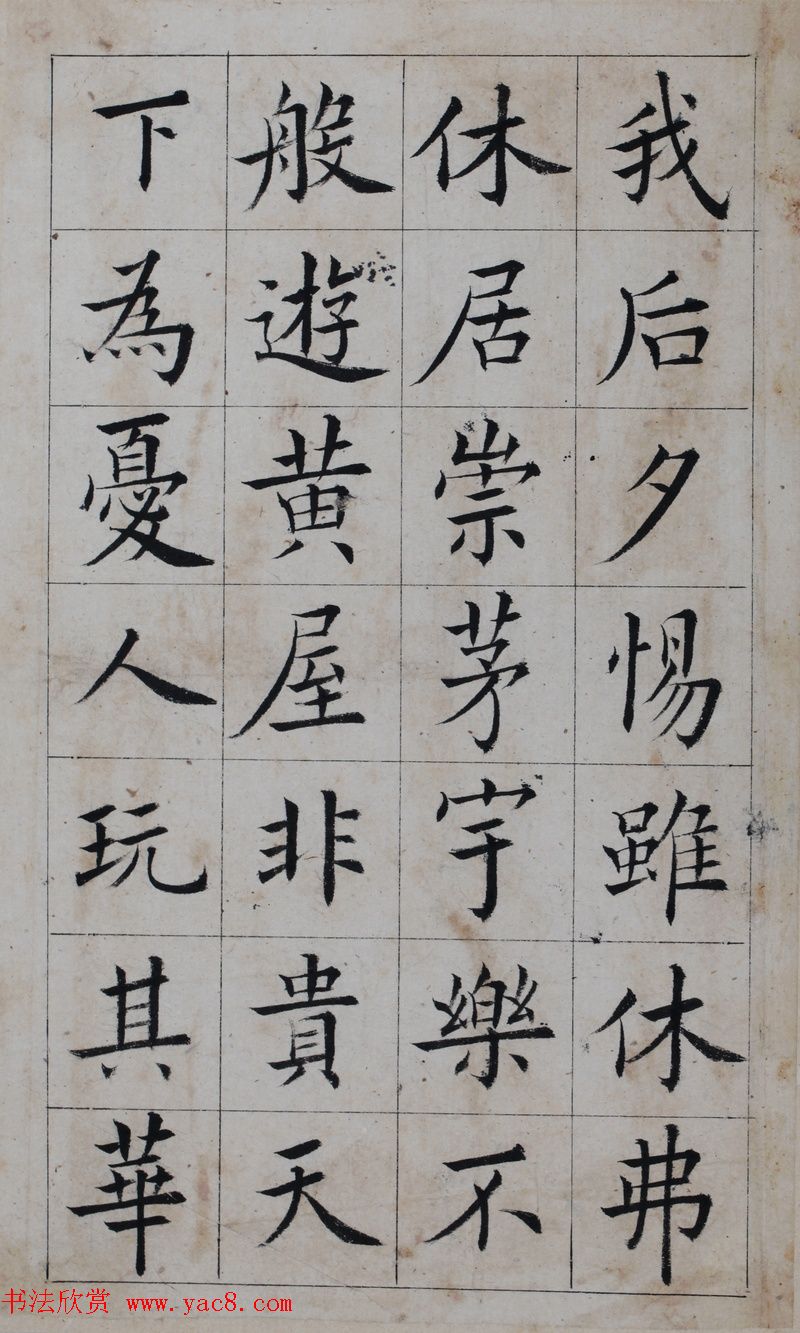 我后夕惕雖休弗
休居崇茅宇樂不
般遊黄屋非貴天
下為憂人玩其華
书法欣赏 www.yac8.com